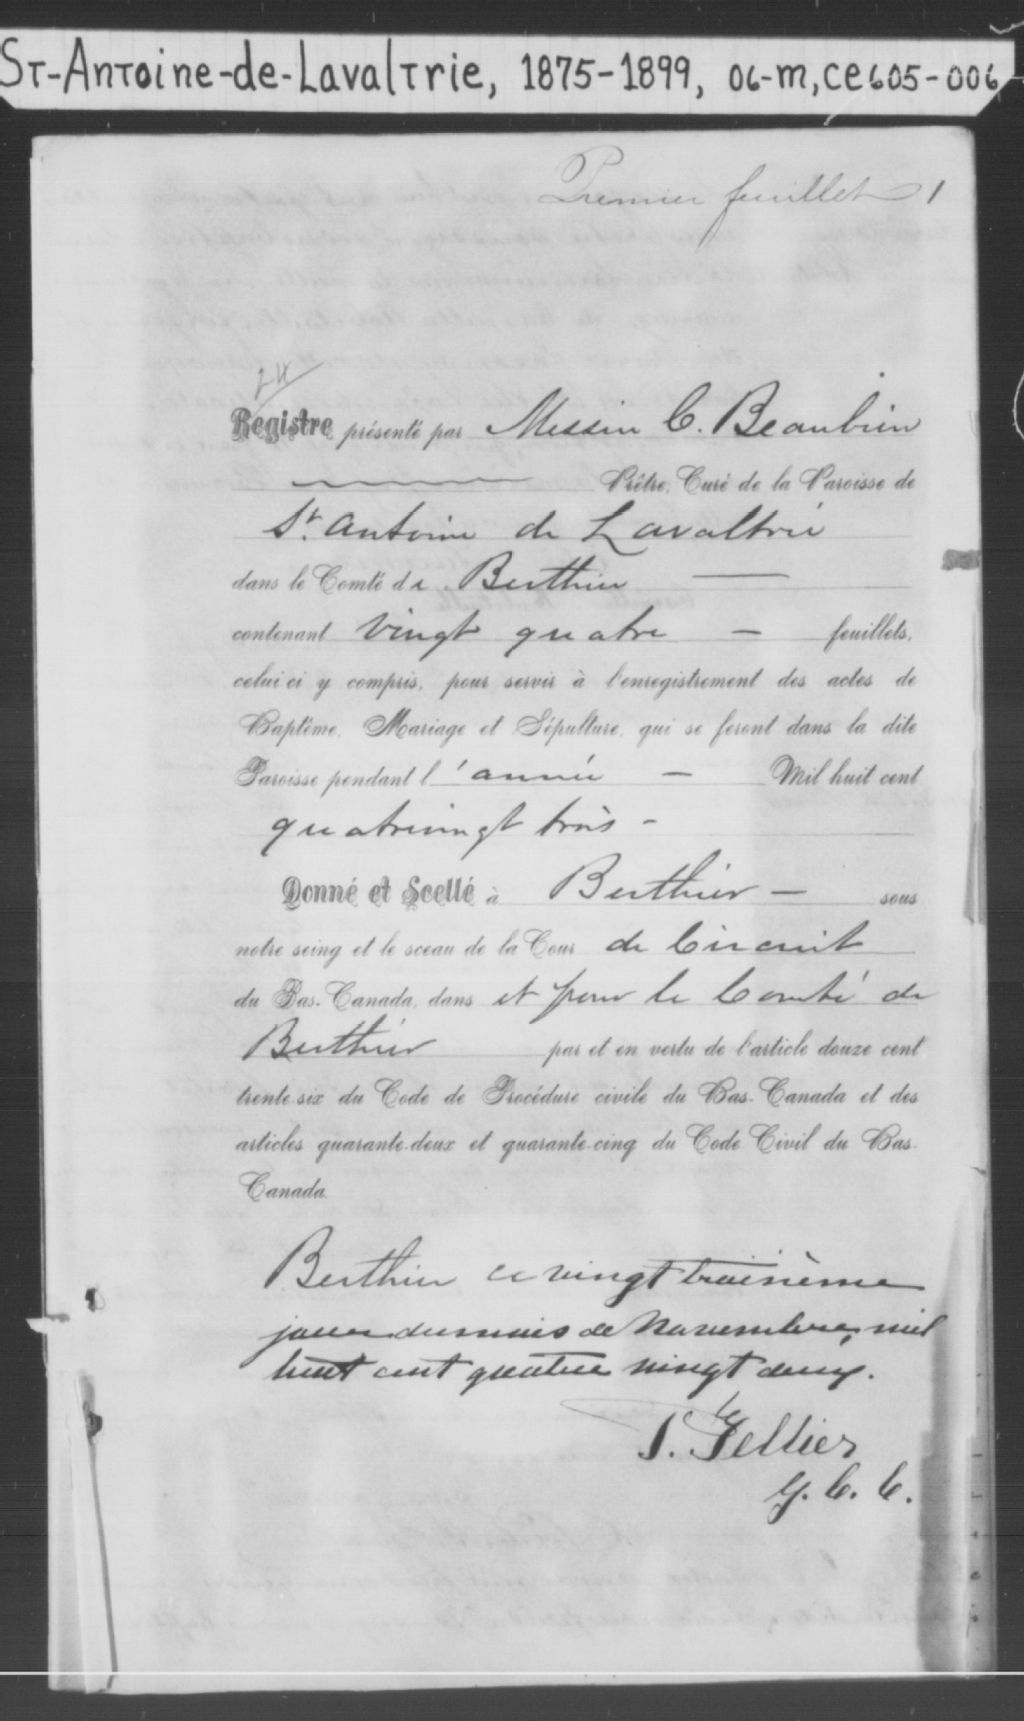 St-Antoine-de-Lavaltrie, 1875-1899, 06-M, CE605-006
Premier feuillet 1
24
Registre présenté par Messire C. Beaubien
Prêtre, Curé de la Paroisse de
St. Antoine de Lavaltrie
dans le Comté de Berthier
contenant vingt quatre - feuillets,
celui ci y compris, pour servir à l'enregistrement des actes de
Baptême, Mariage et Sépulture, qui se feront dans la dite
Paroisse pendant l'année - Mil huit cent
quatrevingt trois -
Donné et Scellé à Berthier - sous
notre seing et le sceau de la Cour de Circuit
du Bas-Canada, dans et pour le Comté de
Berthier par et en vertu de l'article douze cent
trente-six du Code de Procédure civile du Bas-Canada et des
articles quarante-deux et quarante-cinq du Code Civil du Bas-
Canada.
Berthier ce vingt troisième
jour du mois de Novembre mil
huit cent quatre vingt deux.
Tellier
C. C.